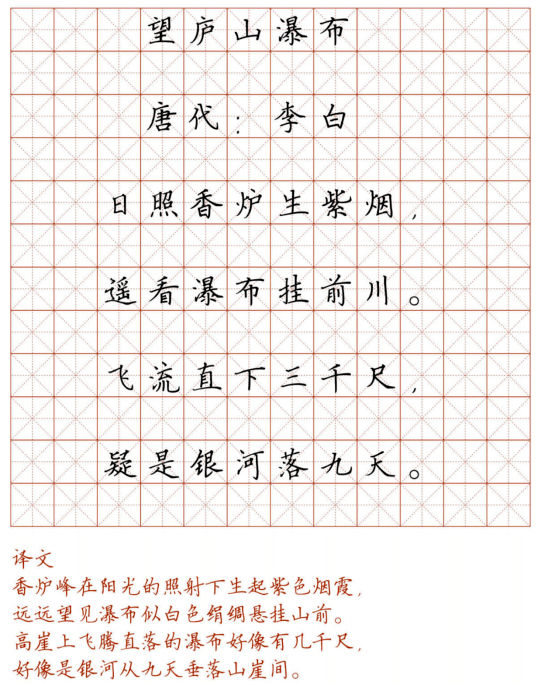 望庐山瀑布
唐代：李白
日照香炉生紫烟，
遥看瀑布挂前川。
飞流直下三千尺，
疑是银河落九天。
译文
香炉峰在阳光的照射下生起紫色烟霞，
远远望见瀑布似白色绢绸悬挂山前。
高崖上飞腾直落的瀑布好像有几千尺，
好像是银河从九天垂落山崖间。